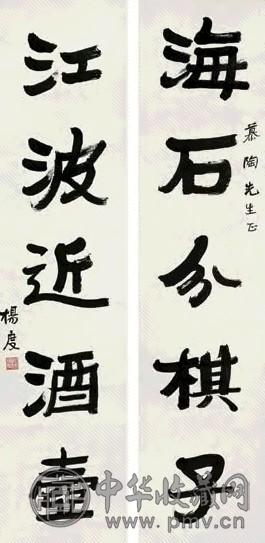 海石分棋子
慕陶先生正
江波近酒壶
楊度
中华收藏网
www.pmv.cn